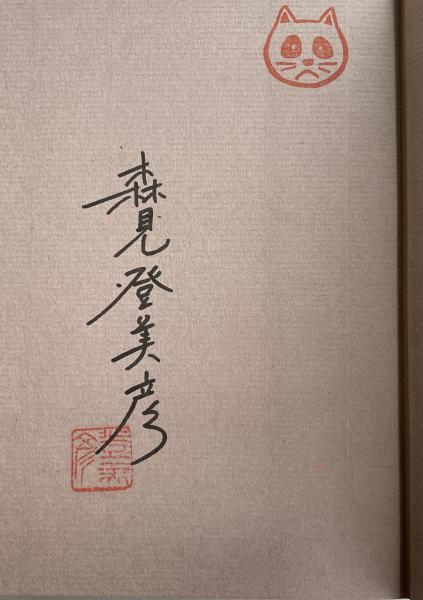 森見登美彦